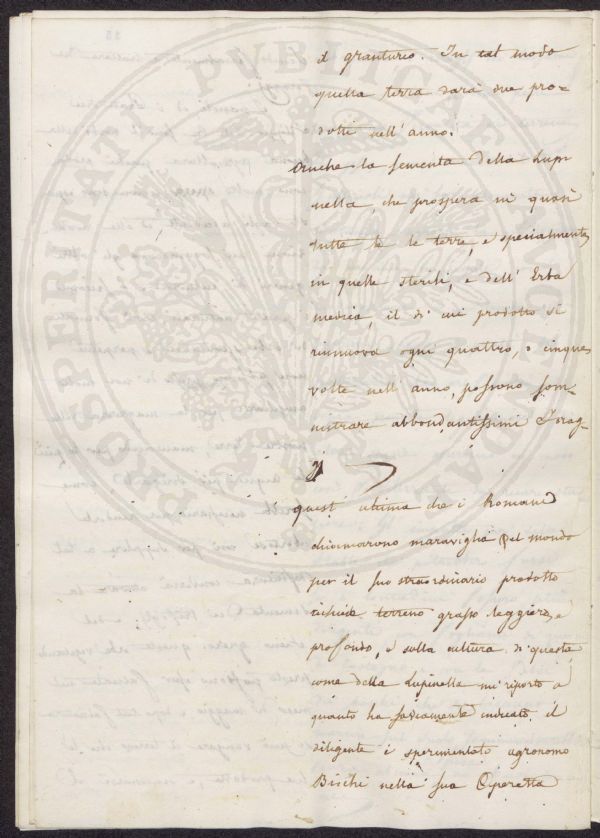 il granturco. In tal modo
quella terra darà due pro=
dotti nell'anno.
Anche la sementa della Lupi
nella, che prospera in quasi
tutte le terre, e specialmente
in quelle sterili, e dell'Erba
medica, il di cui prodotto si
rinnuova ogni quattro, o cinque
volte nell'anno, possono som=
nistrare abbondantissimi Forag=
gi
Quest'ultima che i Romani
chiamarono maraviglia del mondo
per il suo straordinario prodotto
richiede terreno grasso leggiero, e
profondo, e sulla cultura di questa,
come della Lupinella mi riporto a
quanto ha saviamente indicato il
diligente e sperimentato agronomo
Bischi nella sua Operetta
PROSPERITATI PVBLICAE AVGENDAE